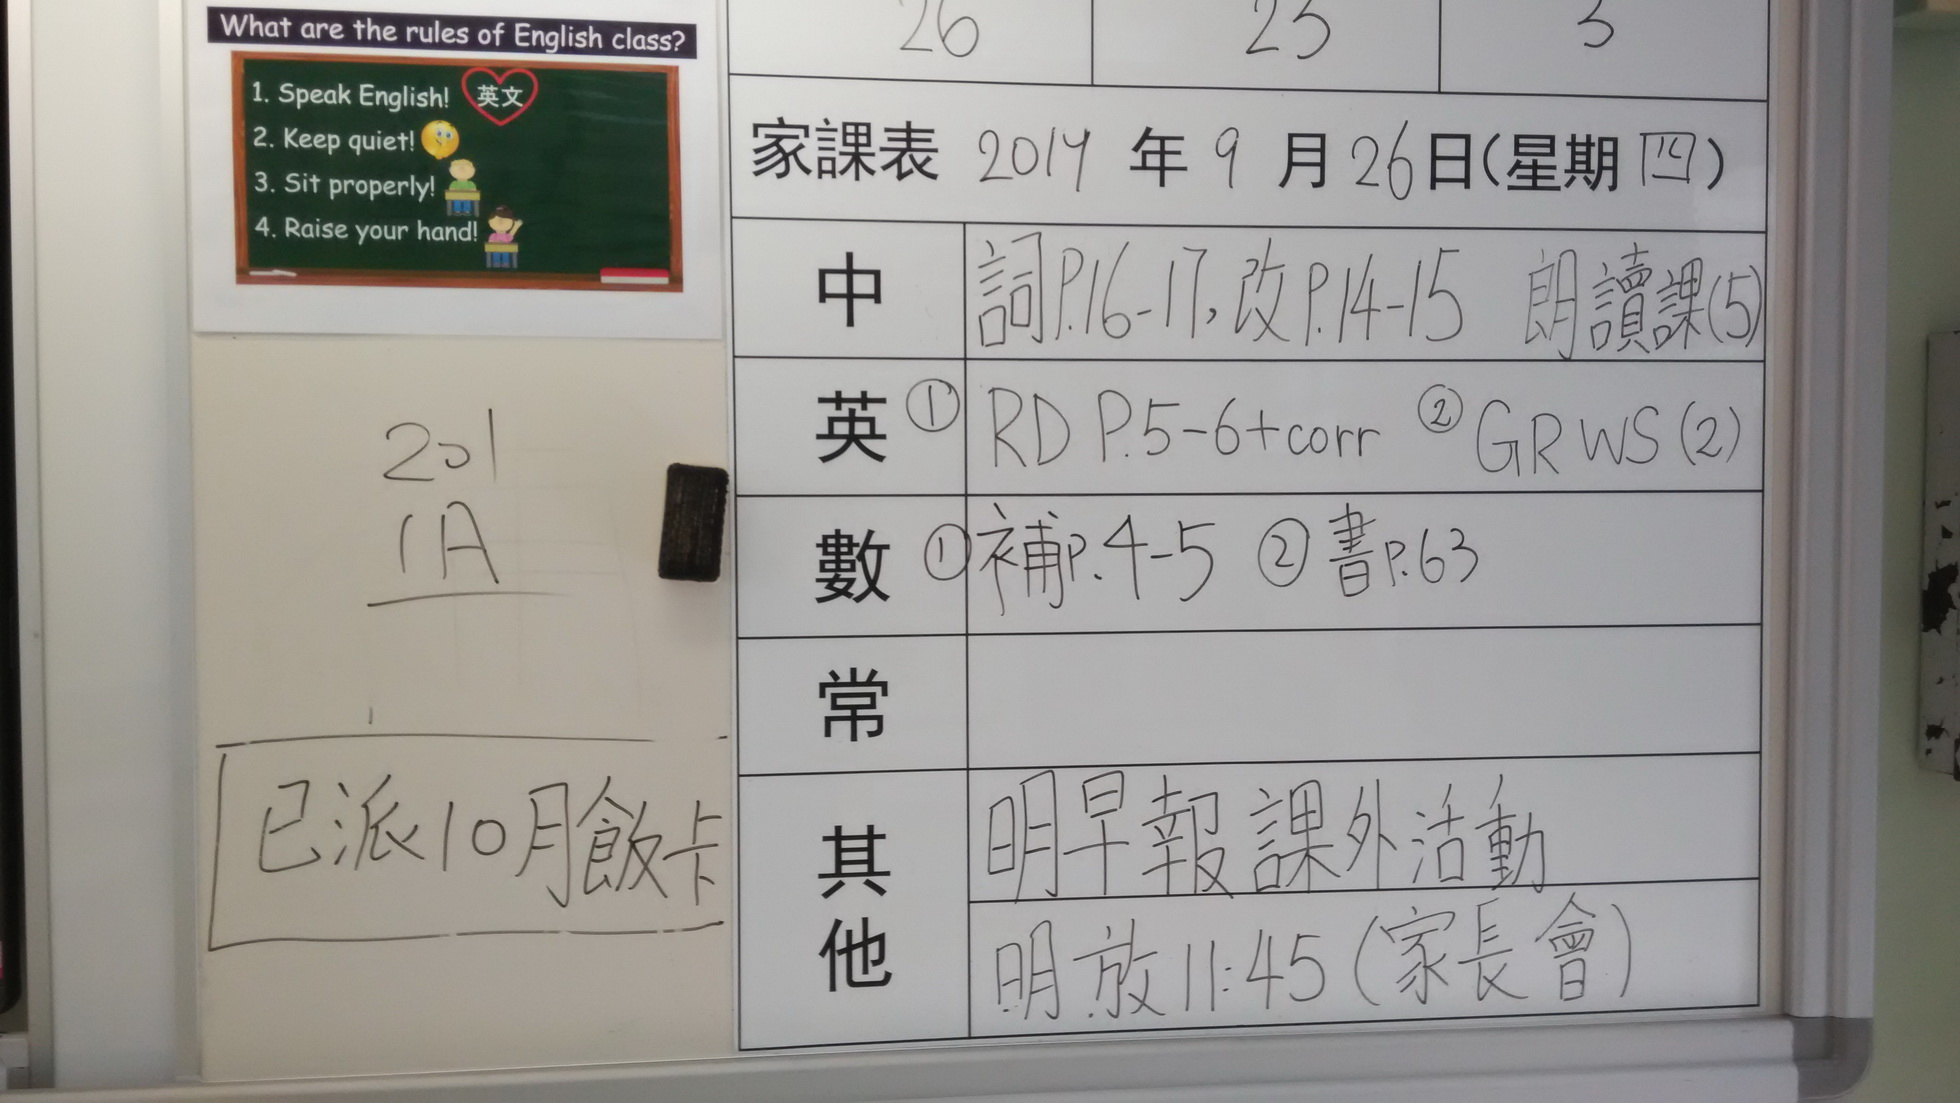 What are the rules of English class?
1. Speak English! 英文
2. Keep quiet!
3. Sit properly!
4. Raise your hand!
201
1A
已派10月飯卡
26 23 3
家課表 2019 年 9 月 26 日(星期 四)
中 詞P.16-17,改P.14-15 朗讀課(5)
英 ① RD P.5-6+corr ② GR WS (2)
數 ① 補P.4-5 ② 書P.63
常
其他 明早報課外活動
明放11:45(家長會)